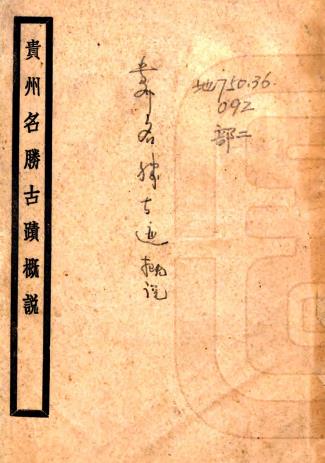 地750.36.
092
部二
贵州名胜古迹概说
貴州名勝古蹟概説